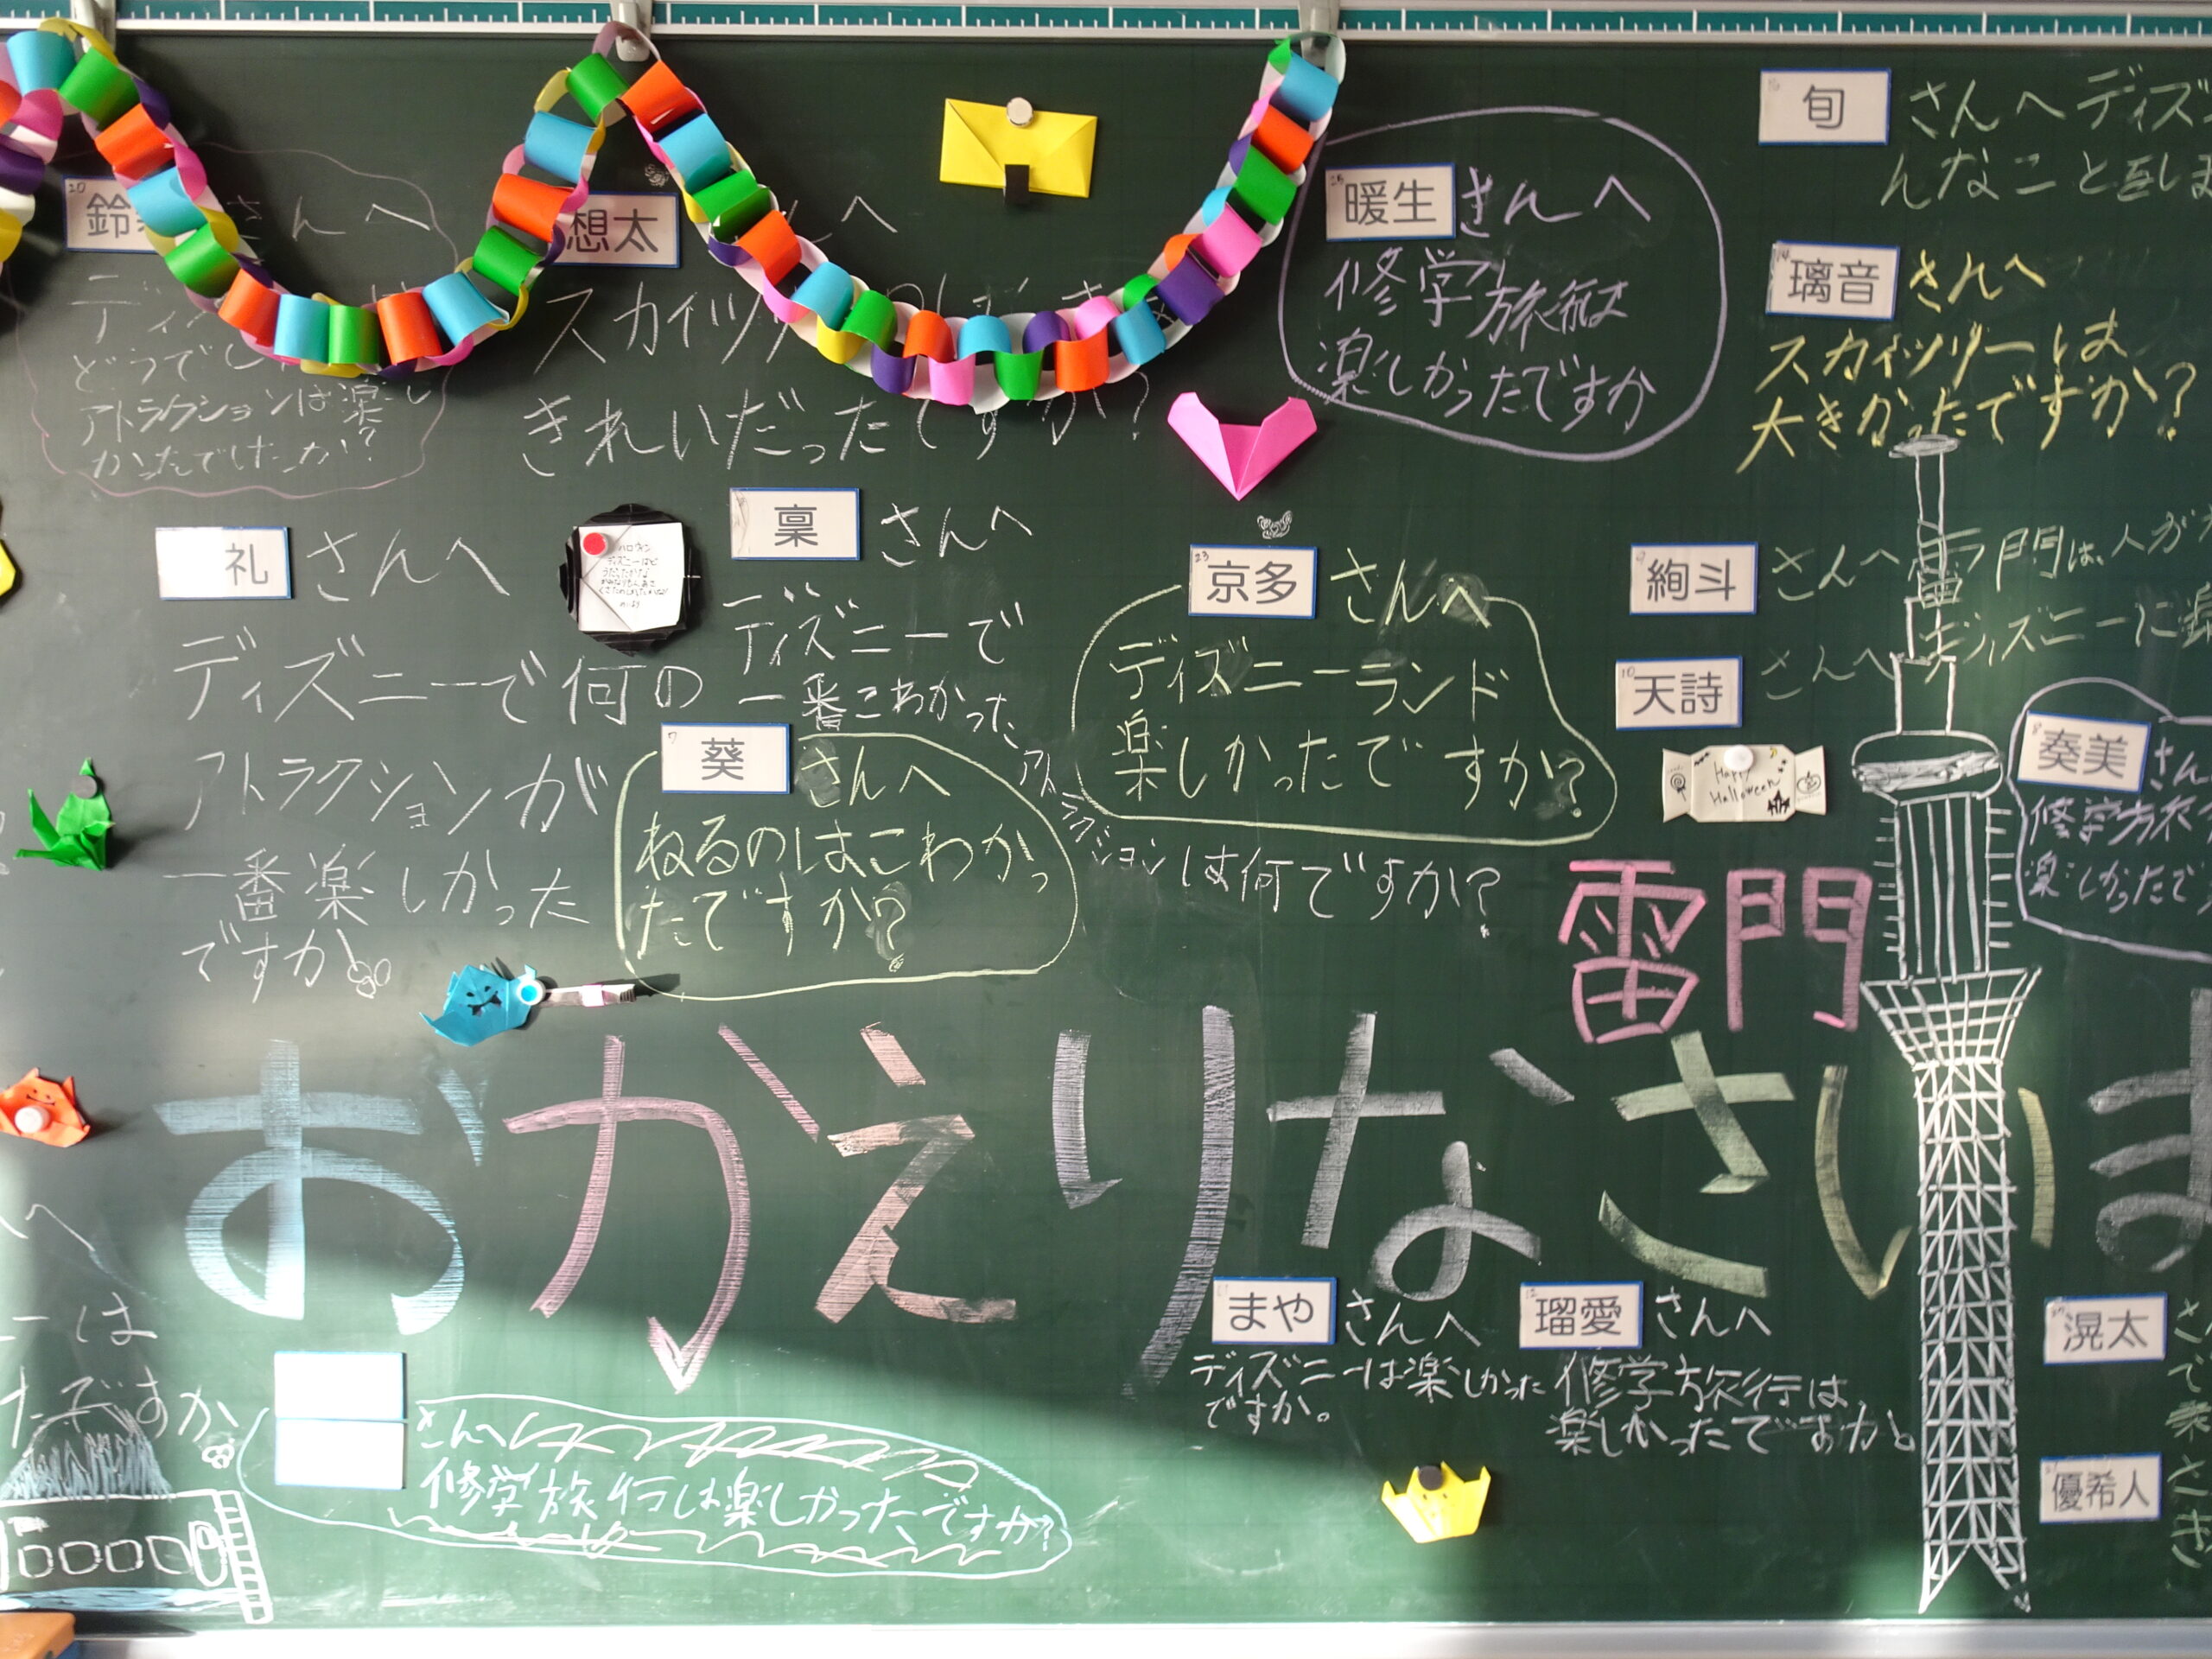 さんへ
どうでし
アトラクションは楽し
かったでしたか?
想太
へ
スカイツ
きれいだったですか?
暖生 さんへ
修学旅行は
楽しかったですか
旬 さんへディズ
んなことをしま
璃音 さんへ
スカイツリーは
大きかったですか?
礼 さんへ
ディズニーで何の
アトラクションが
一番楽しかった
ですか
稟 さんへ
ディズニーで
一番こわかった
アトラクションは何ですか?
葵 さんへ
ねるのはこわかっ
たですか?
京多 さんへ
ディズニーランド
楽しかったですか?
絢斗 さんへ 雷門は、人が
天詩 さんへ ディズニーに
Happy
Halloween
奏美 さん
修学旅行
楽しかったで
雷門
おかえりなさいま
まや さんへ
ディズニーは楽しかった
ですか。
瑠愛 さんへ
修学旅行は、
楽しかったですか
滉太 さ
で
楽
優希人 さ
さ
へ
ーは
たですか
さんへ
修学旅行は楽しかったですか?